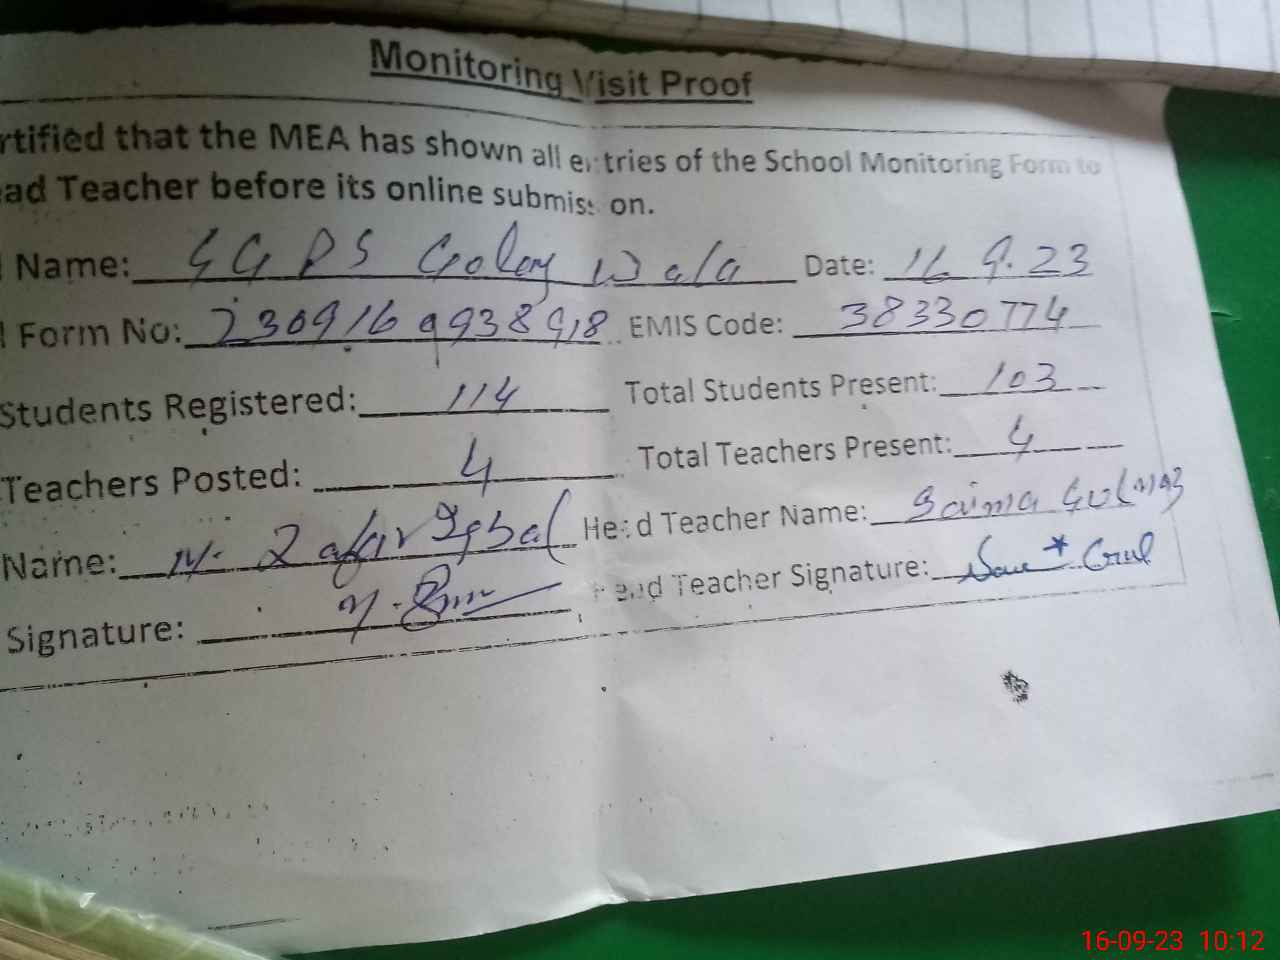 Monitoring Visit Proof
rtified that the MEA has shown all entries of the School Monitoring Form to
ad Teacher before its online submission.
Name: GGPS Goley Wala Date: 16.9.23
Form No: 2309169938918 EMIS Code: 38330774
Students Registered: 114 Total Students Present: 103
Teachers Posted: 4 Total Teachers Present: 4
Name: M. Zafar Iqbal Head Teacher Name: Saima Gulnaz
Signature: Head Teacher Signature:
16-09-23 10:12